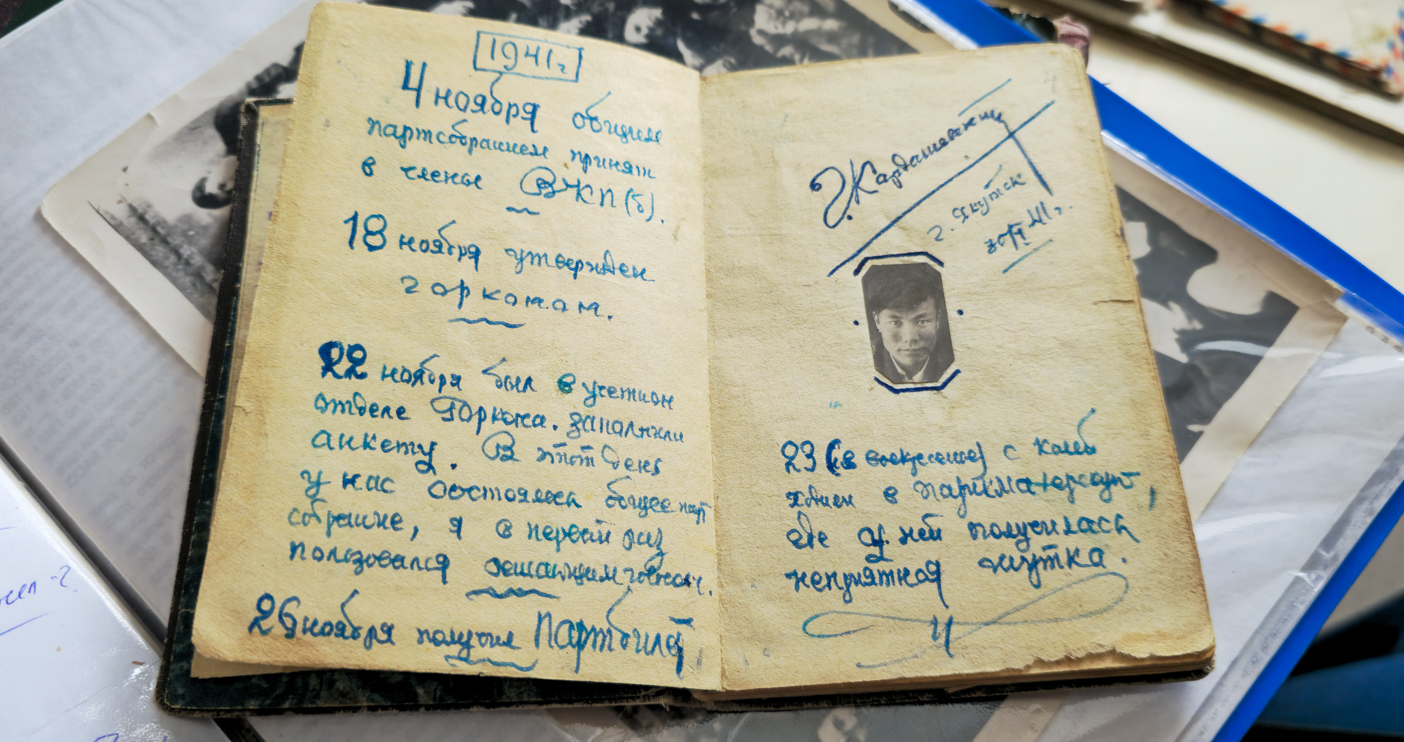 1941г
4 ноября общим
партсобранием принят
в члены ВКП(б).
18 ноября утвержден
горкомом.
22 ноября был в учетном
отделе Горкома. заполнили
анкету. В этот день
у нас состоялось общее парт
собрание, я в первый раз
пользовался решающим голосом.
26 ноября получил Партбилет,
Г. Кардашевский
г. Якутск
41г.
23 (в воскресение) с Колей
ходили в парикмахерскую,
где у ней получилась
неприятная шутка.